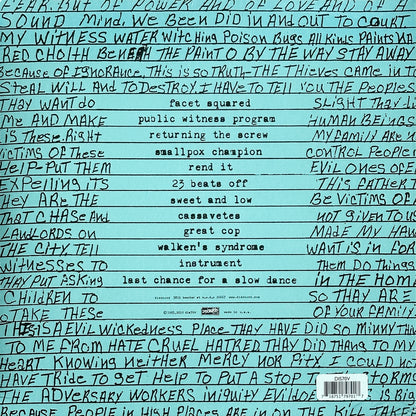 FEAR. BUT OF POWER AND OF LOVE AND OF A
SOUND MIND, WE BEEN DID IN AND OUT TO COURT
MY WITNESS WATER WITCHING POISON BUGS ALL KINDS PAINTS
RED CLOITH BENEATH THE PAINT O BY THE WAY STAY AWAY
BECAUSE OF IGNORANCE, THIS IS SO TRUTH-THE THIEVES CAME IN TO
STEAL WILL AND TO DESTROY, I HAVE TO TELL YOU THE PEOPLES
THAY WANT DO facet squared SLIGHT THAY
ME AND MAKE public witness program HUMAN BEINGS
IS THESE. RIGHT returning the screw MY FAMILY ARE
VICTIMS OF THESE smallpox champion CONTROL PEOPLE
HELP-PUT THEM rend it EVIL ONES OF
EXPELLING ITS 23 beats off THIS FATHER
THEY ARE THE sweet and low BE VICTIMS OF
THAT CHASE AND cassavetes NOT GIVEN TO US
LANDLORDS ON great cop MADE MY HAW
THE CITY. TELL walken's syndrome WANT IS IN FOR
WITNESSES TO instrument THEM DO THINGS
THAY PUT ASKING last chance for a slow dance IN THE HOME
CHILDREN TO SO THAY ARE
TAKE THESE OF YOUR FAMILY
THIS IS A EVIL WICKEDNESS PLACE THAY HAVE DID SO MINNY THAN
TO ME FROM HATE CRUEL HATRED THAY DID THANG TO MY
HEART KNOWING NEITHER MERCY NOR PITY I COULD NO
HAVE TRIDE TO GET HELP TO PUT A STOP THE TORMENTS
THE ADVERSARY WORKERS INIQUITY EVIL
BECAUSE PEOPLE IN HIGH PLACES ARE IN ON THE KILL
DIS70V